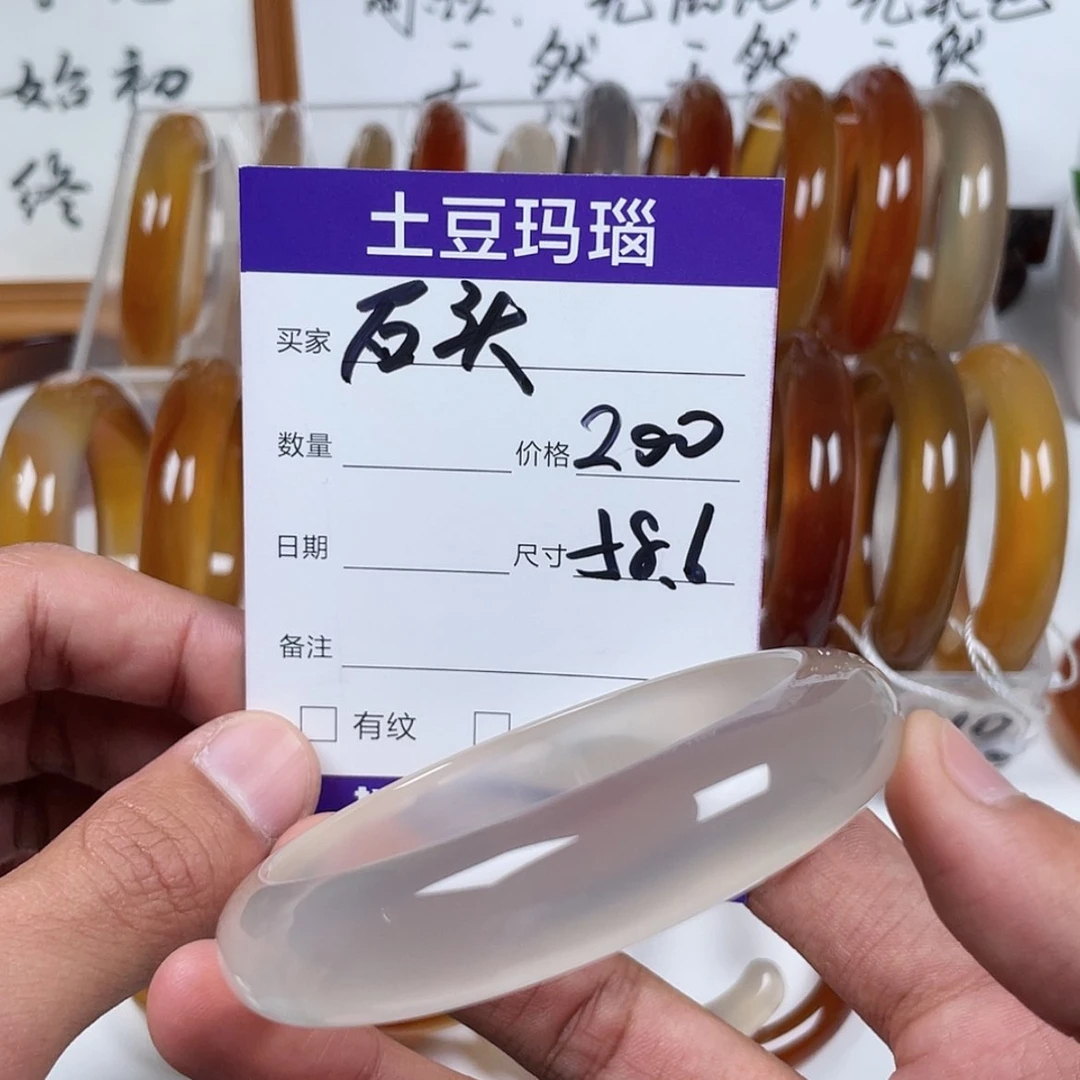 始 初
终
然 然 然
土豆玛瑙
买家 石头
数量 价格 200
日期 尺寸 58.6
备注
有纹